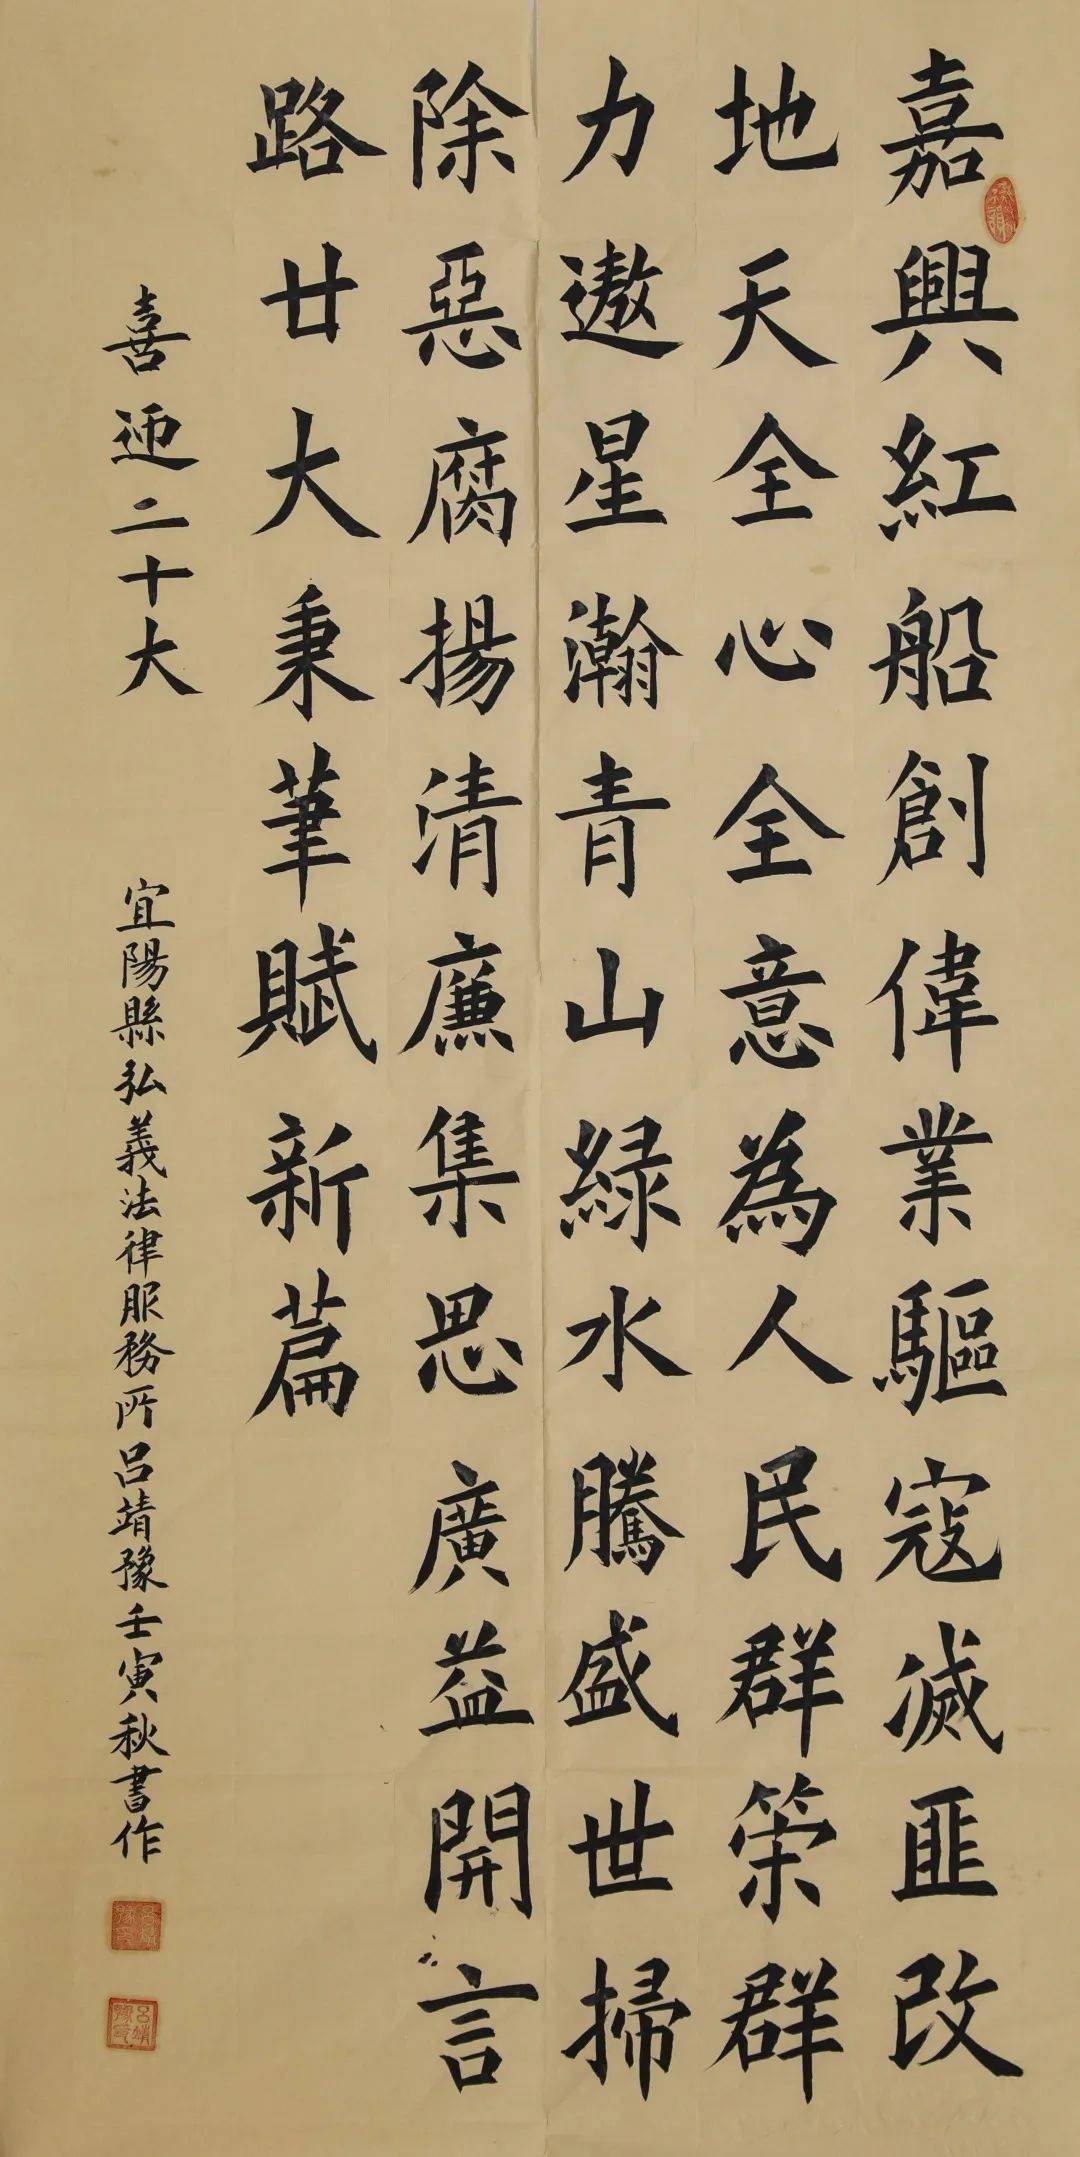 嘉興紅船創偉業驅寇滅匪改
地天全心全意為人民群策群
力遨星瀚青山綠水騰盛世掃
除惡腐揚清廉集思廣益開言
路廿大秉筆賦新篇
喜迎二十大
宜陽縣弘義法律服務所呂靖豫壬寅秋書作